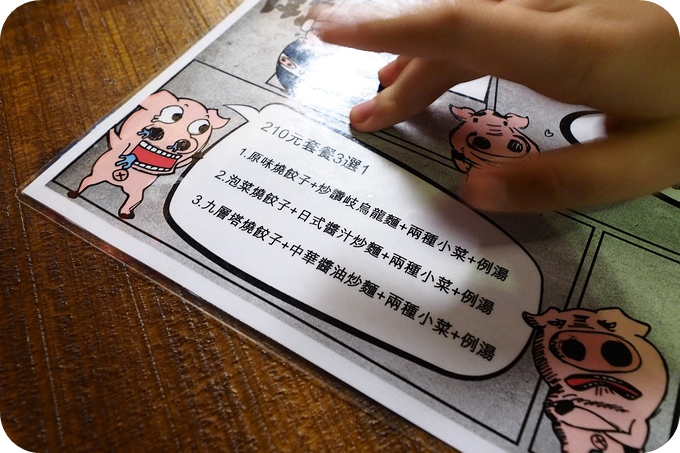 210元套餐3選1
1.原味燒餃子+炒讚岐烏龍麵+兩種小菜+例湯
2.泡菜燒餃子+日式醬汁炒麵+兩種小菜+例湯
3.九層塔燒餃子+中華醬油炒麵+兩種小菜+例湯